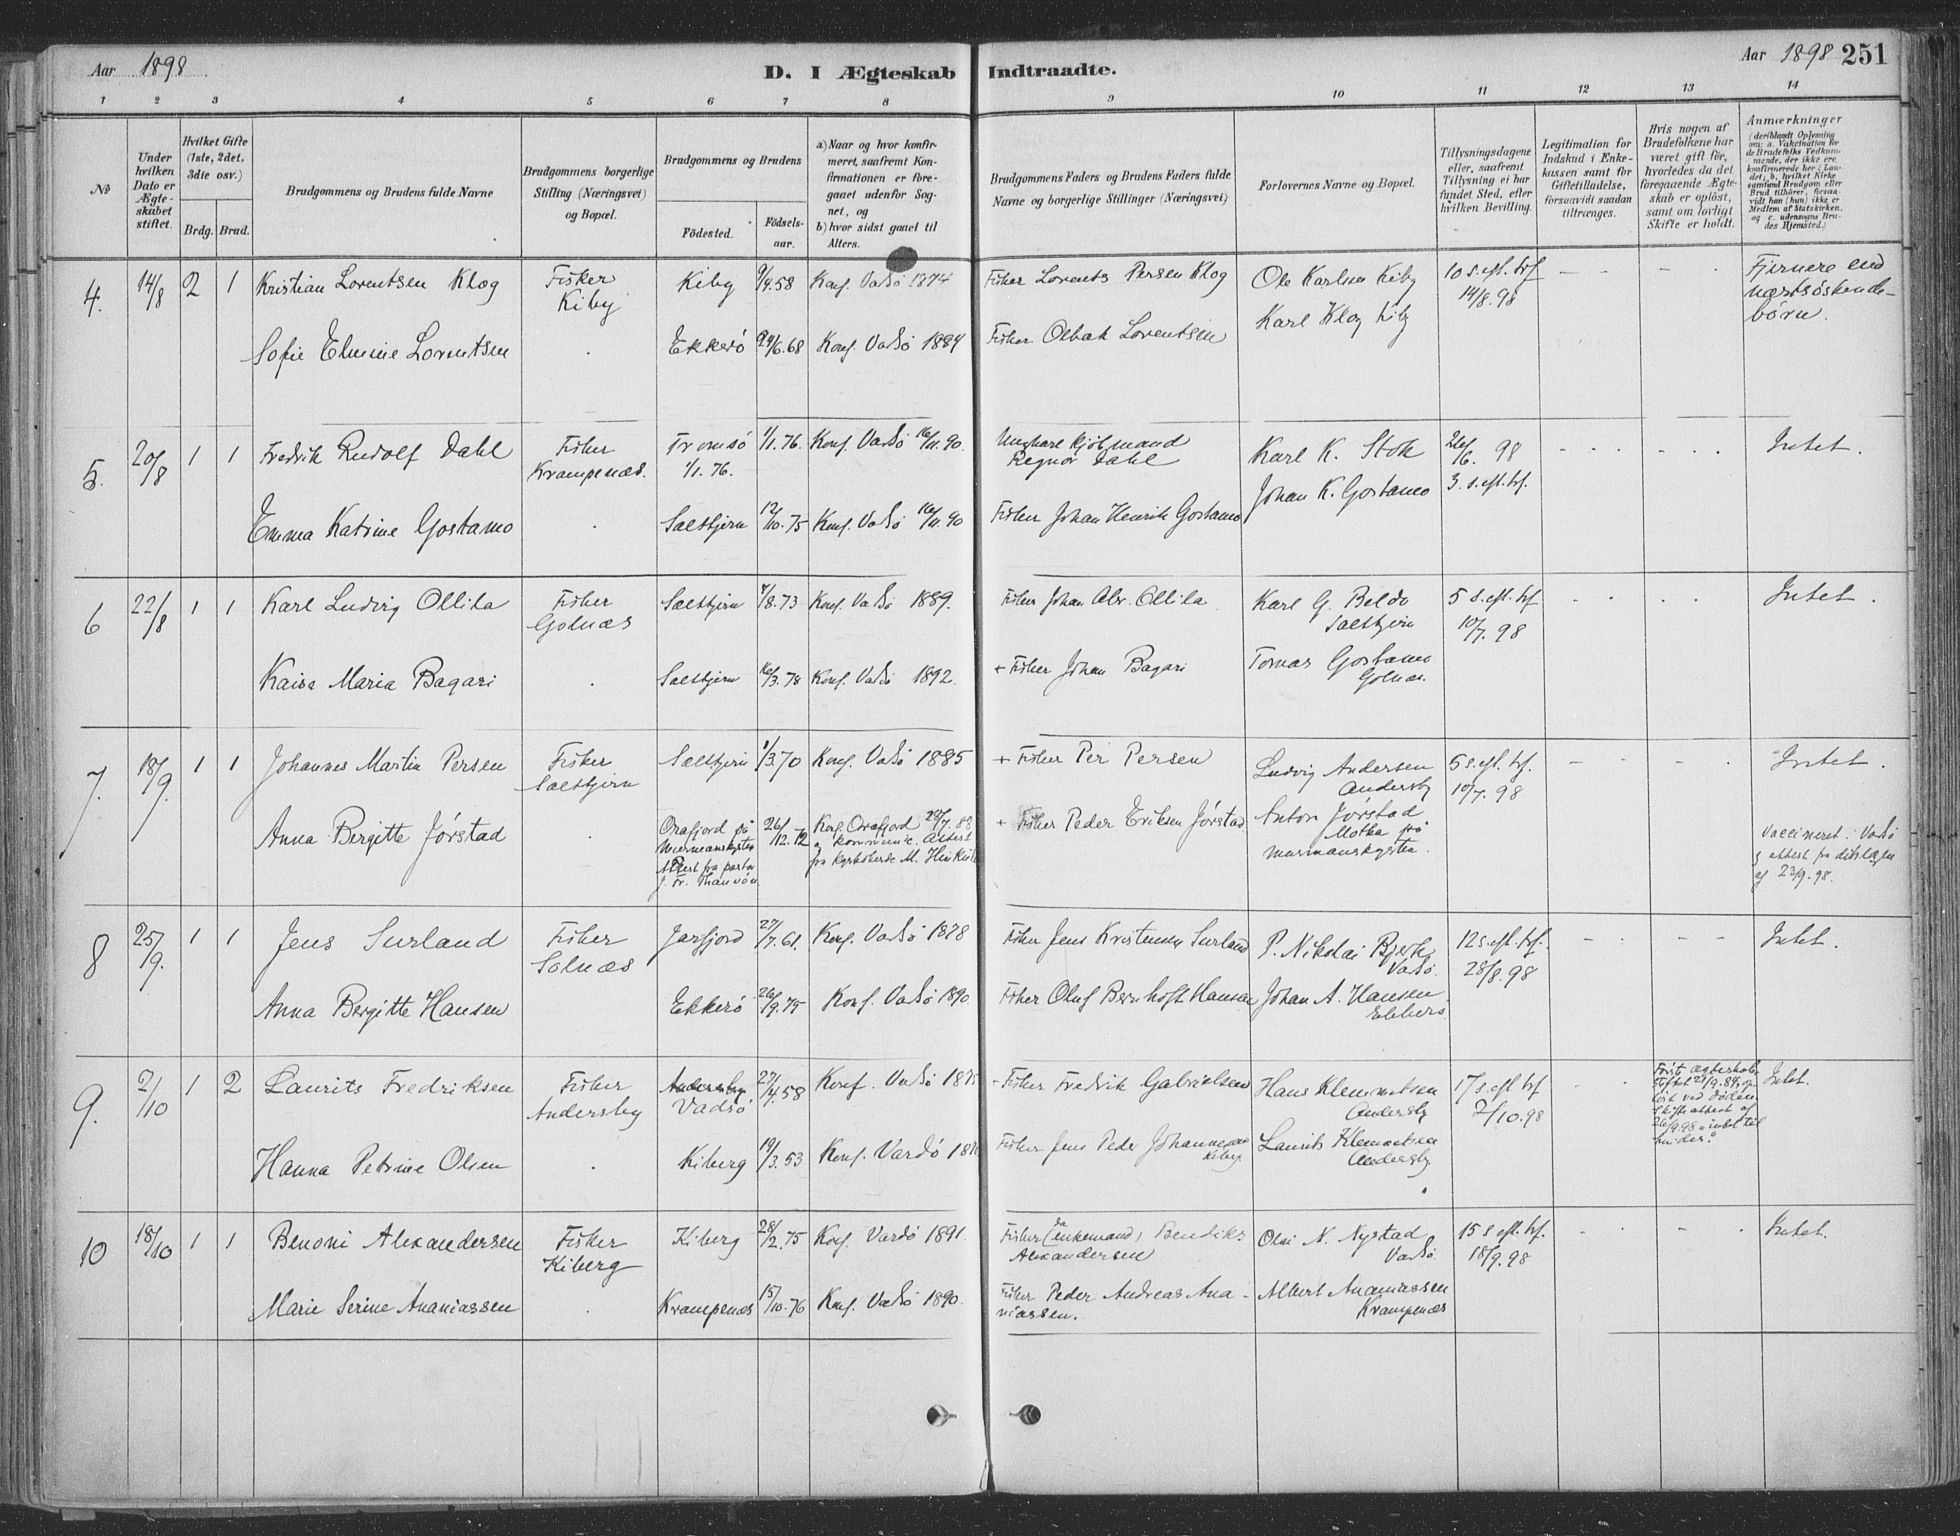 Aar 1898
D. I Ægteskab Indtraadte.
Aar 1898 251
1 2 3 4 5 6 7 8 9 10 11 12 13 14
No
Under hvilken Dato er Ægteskabet stiftet.
Hvilket Gifte (1ste, 2det, 3die osv.)
Brdg. Brud.
Brudgommens og Brudens fulde Navne
Brudgommens borgerlige Stilling (Næringsvei) og Bopæl.
Brudgommens og Brudens
Födested. Födsels-aar.
a) Naar og hvor konfirmeret, saafremt Konfirmationen er foregaaet udenfor Sognet, og
b) hvor sidst gaaet til Alters.
Brudgommens Faders og Brudens Faders fulde Navne og borgerlige Stillinger (Næringsvei)
Forlovernes Navne og Bopæl.
Tillysningsdagene eller, saafremt Tillysning ei har fundet Sted, efter hvilken Bevilling.
Legitimation for Indskud i Enkekassen samt for Giftetilladelse, forsaavidt saadan tiltrænges.
Hvis nogen af Brudefolkene har været gift för, hvorledes da det foregaaende Ægteskab er oplöst, samt om lovligt Skifte er holdt.
Anmærkninger (deriblandt Oplysning om: a. Vakcination for de Brudefolks Vedkommende, der ikke ere konfirmerede her i Landet; b. hvilket Kirkesamfund Brudgom eller Brud tilhörer, forsaavidt han (hun) ikke er Medlem af Statskirken, og c. udensogns Brudes Hjemsted.)
4. 14/8 2 1 Kristian Lorentsen Klog Fisker Kiby Kiby 9/9.58 Konf. Vadsö 1874 Fisker Lorents Persen Klog Ole Karlsen Kiby 10 s. eft. trf. 14/8.98 – – – Fjernere end nærsöskendebörn.
Sofie Elmine Lorentsen . Ekkerö 24/6.68 Konf. Vadsö 1884 Fisker Olbak Lorentsen Karl Klog Kiby
5. 20/8 1 1 Fredrik Rudolf Dahl Fisker Krampenæs. Tromsö 1/1.76. 1/1.76. Konf. Vadsö 16/11.90. Ungkarl kjöbmand Regnor Dahl Karl K. Stok 26/6 98 3. s. eft. trf. Intet.
Emma Katrine Gostamo . Saltjern 12/10.75 Konf. Vadsö 16/11.90 Fisker Johan Henrik Gostamo Johan K. Gostamo
6 22/8 1 1 Karl Ludvig Ollila Fisker Golnæs Saltjern 7/8.73 Konf. Vadsö 1889. Fisker Johan Alr. Ollila Karl G. Beldo Saltjern 5 s. eft. trf. 10/7.98 Intet.
Kaisa Maria Bagari . Saltjern 16/3.78 Konf. Vadsö 1892. + Fisker Johan Bagari Tomas Gostamo Golnæs.
7. 18/9. 1 1 Johannes Martin Persen Fisker Saltjern Saltjern 1/3.70 Konf. Vadsö 1885 + Fisker Per Persen Ludvig Andersen Andersby 5 s. eft. trf. 10/7.98 Intet.
Anna Bergitte Jörstad . Orafjord på Murmanskysten Attest fra pastor 26/12.72 Konf. Orafjord 28/7.88 + Fisker Peder Eriksen Jörstad Anton Jörstad Motka på Murmanskysten. Vaccineret i Vadsö attest fra distslægen af 23/9.98.
8 25/9. 1 1 Jens Surland Fisker Golnæs Jarfjord 27/7.61. Konf. Vadsö 1878 Fisker Jens Kristensen Surland P. Nikolai Bjerk Vadsö. 12 s. eft. trf. 28/8.98 Intet.
Anna Bergitte Hansen Ekkerö 26/9.75 Konf. Vadsö 1890 Fisker Oluf Bernhoft Hansen Johan A. Hansen Ekkerö.
9. 2/10 1 2 Laurits Fredriksen Fisker Andersby Andersby Vadsö 27/4.58 Konf. Vadsö + Fisker Fredrik Gabrielsen Hans Klemmetsen Andersby 17 s. eft. trf. 2/10.98 Först Ægteskab stiftet 29/9.89, oplöst ved döden. Skifteattest af 26/9.98 intet til hinder. Intet.
Hanna Petrine Olsen . Kiberg 19/3.53 Konf. Vardö Fisker Jens Peder Johannesen Kiberg. Laurits Klemetsen Andersby.
10 18/10 1 1 Benoni Alexandersen Fisker Kiberg Kiberg 28/2.75 Konf. Vardö 1891. Fisker (da enkemand) Bendiks Alexandersen Olai N. Nystad Vadsö. 15 s. eft. trf. 18/9.98 Intet.
Marie Serine Ananiassen . Krampenæs 15/10.76 Konf. Vadsö 1890. Fisker Peder Andreas Ananiassen. Albert Ananiassen Krampenæs